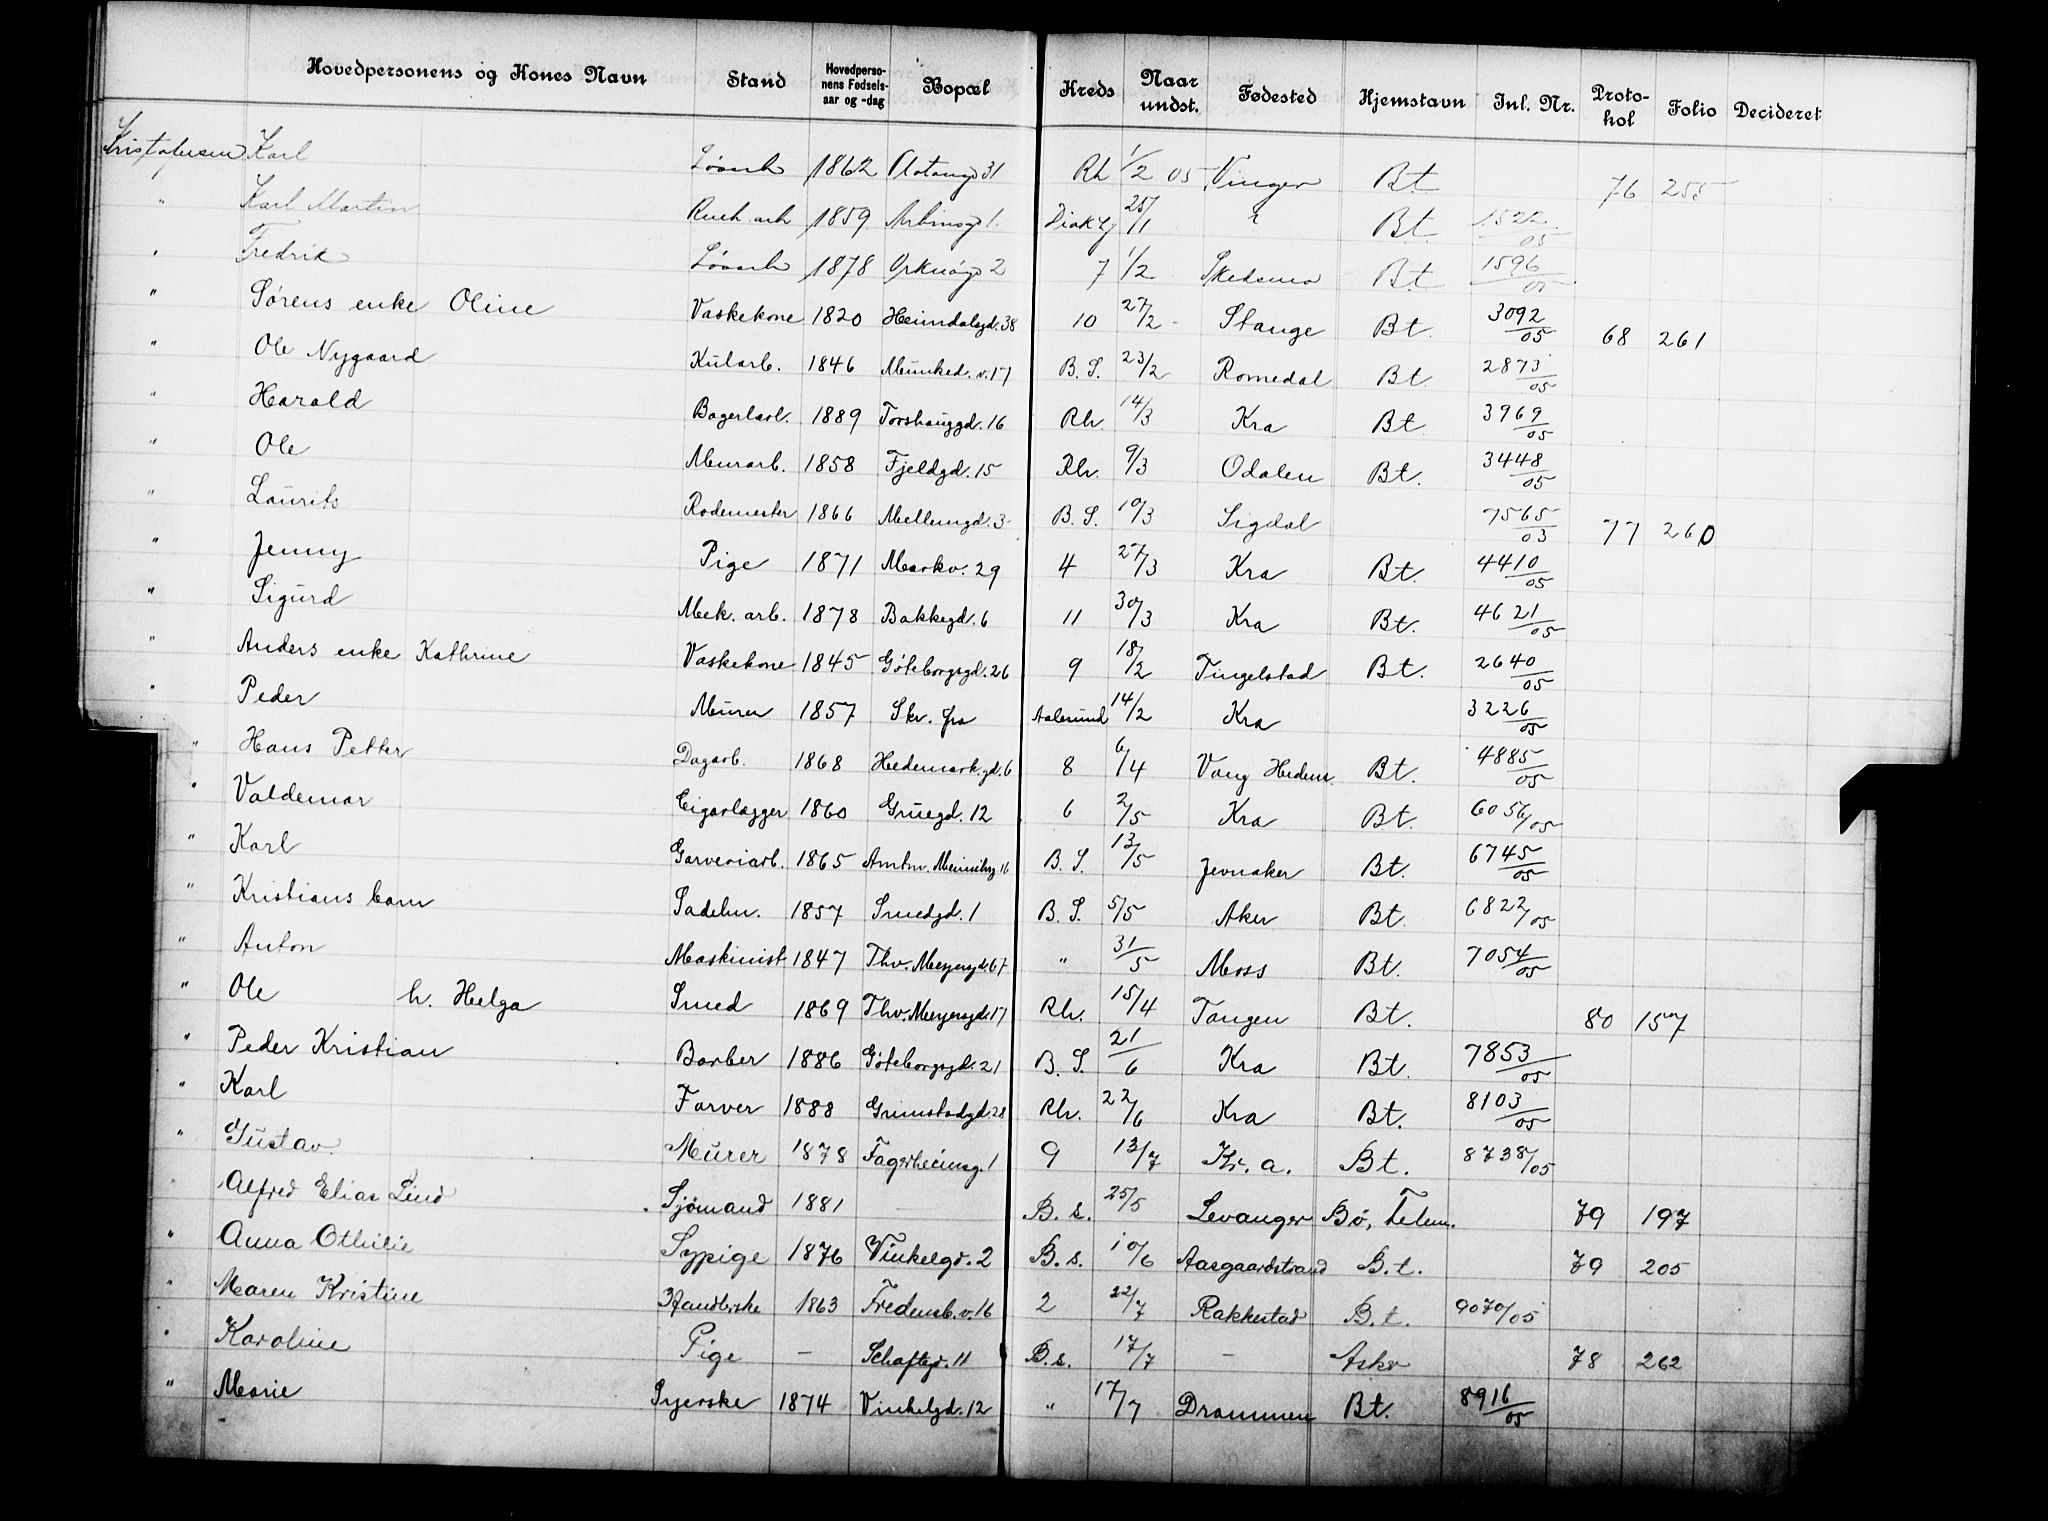 Hovedpersonens og Kones Navn Stand Hovedperso-nens Fødsels-aar og -dag Bopæl Kreds Naar undst. Fødested Hjemstavn Inl. Nr. Proto-kol Folio Decideret
Kristofersen Karl Løsarb 1862 Platousgd 31 Rh 1/2 05 Vinger Bt 76 255
" Karl Martin arb 1859 1. 25/1 Bt. 1522/05
" Fredrik Løsarb 1878 Orknøgd 2 7 1/2 Skedsmo Bt 1596/05
" Sørens enke Oline Vaskekone 1820 Heimdalsgd. 38 10 27/2 Stange Bt. 3092/05 68 261
" Ole Nygaard Kularb. 1846 Munked. v. 17 B. S. 23/2 Romedal Bt. 2873/05
" Harald Bagerlærl. 1889 Torshauggd. 16 Rh. 14/3 Kra Bt. 3969/05
" Ole Murarb. 1858 Fjeldgd. 15 Rh. 9/3 Odalen Bt. 3448/05
" Laurits Rodemester 1866 Mellemgd. 3 B. S. 10/3 Sigdal 7565/03 77 260
" Jenny Pige 1871 Markv. 29 4 27/3 Kra Bt. 4410/05
" Sigurd Mek. arb. 1878 Bakkegd. 6 11 30/3 Kra Bt. 4621/05
" Anders enke Kathrine Vaskekone 1845 Göteborgsgd. 26 9 18/2 Tingelstad Bt. 2640/05
" Peder Murer 1857 Skr. fra Aalesund 14/2 Kra 3226/05
" Hans Petter Dagarb. 1868 Hedemark.gd. 6 8 6/4 Vang Hedem. Bt. 4885/05
" Valdemar Cigarlægger 1860 Gruegd. 12 6 2/5 Kra Bt. 6056/05
" Karl Garveriarb. 1865 Amtm. 16 B. S. 13/5 Jevnaker Bt. 6745/05
" Kristians barn Sadelm. 1857 Smedgd. 1 B. S. 5/5 Aker Bt. 6822/05
" Anton Maskinist 1847 Thv. Meyersgd. 67 " 31/5 Moss Bt. 7054/05
" Ole h. Helga Smed 1869 Thv. Meyersgd. 17 Rh. 15/4 Tangen Bt. 80 157
" Peder Kristian Barber 1886 Göteborgsgd. 21 B. S. 21/6 Kra Bt. 7853/05
" Karl Farver 1888 Grimstadgd. 28 Rh. 22/6 Kra Bt. 8103/05
" Gustav. Murer 1878 Fagerheimsg. 1 9 13/7 Kr. a. Bt. 8738/05
" Alfred Elias Lind Sjømand 1881 — B. s. 25/5 Levanger Bø, Telem. 79 197
" Anna Othilie Sypige 1876 Vinkelgd. 2 B. s. 10/6 Aasgaardstrand B. t. 79 205
" Maren Kristine Handlerske 1863 Fredensb. v. 16 2 22/7 Rakkestad B. t. 9070/05
" Karoline Pige — Schaftgd. 11 B. s. 17/7 — Asker 78 262
" Marie Syerske 1874 Vinkelgd. 12 " 17/7 Drammen Bt. 8916/05